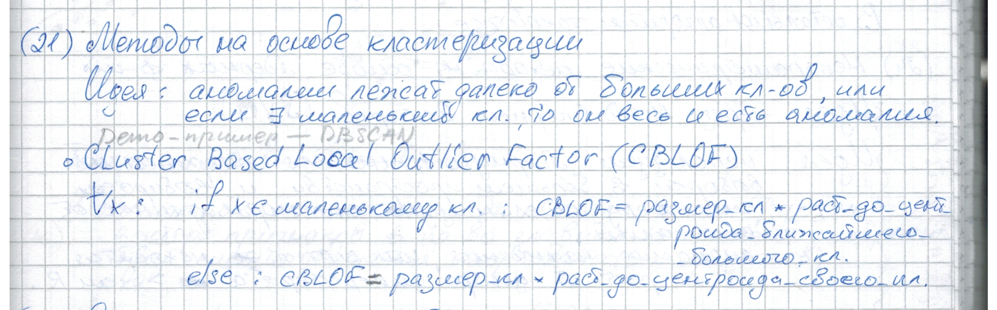 (21) Методы на основе кластеризации
Идея: аномалии лежат далеко от больших кл-ов, или
если ∃ маленький кл., то он весь и есть аномалия.
Demo-пример — DBSCAN
• Cluster Based Local Outlier Factor (CBLOF)
∀x: if x ∈ маленькому кл.: CBLOF = размер_кл * раст_до_цент
роида_ближайшего_
_большого_кл.
else: CBLOF = размер_кл * раст_до_центроида_своего_кл.